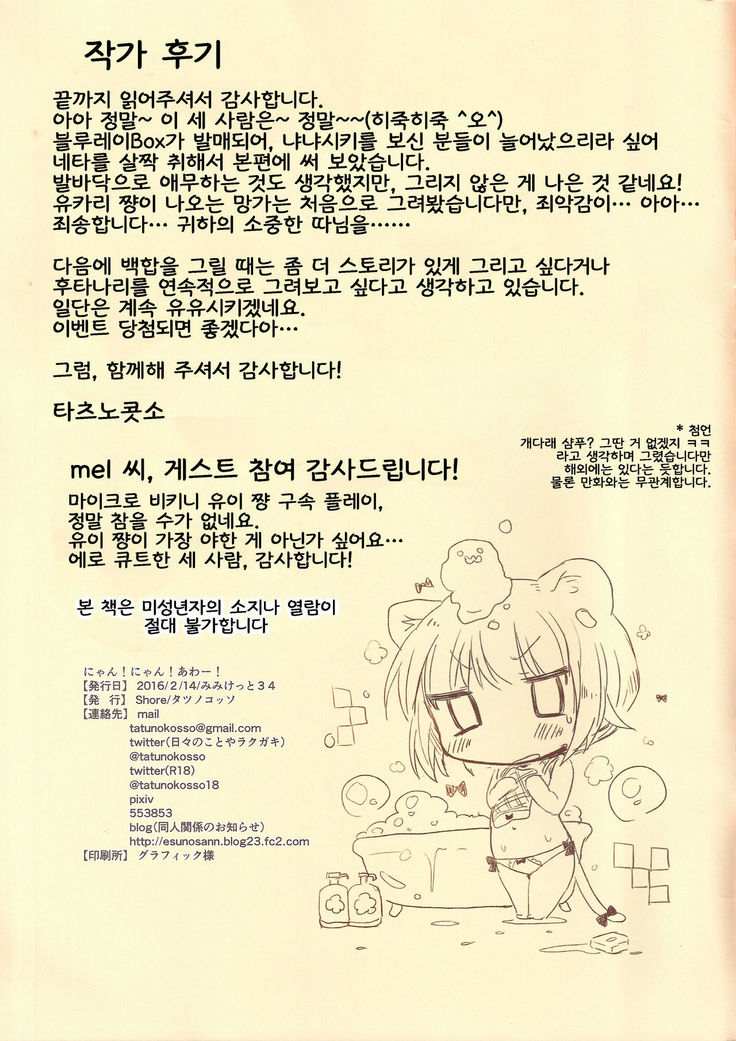 작가 후기
끝까지 읽어주셔서 감사합니다.
아아 정말~ 이 세 사람은~ 정말~~(히죽히죽 ^오^)
블루레이Box가 발매되어, 냐냐시키를 보신 분들이 늘어났으리라 싶어
네타를 살짝 취해서 본편에 써 보았습니다.
발바닥으로 애무하는 것도 생각했지만, 그리지 않은 게 나은 것 같네요!
유카리 쨩이 나오는 망가는 처음으로 그려봤습니다만, 죄악감이… 아아…
죄송합니다… 귀하의 소중한 따님을……
다음에 백합을 그릴 때는 좀 더 스토리가 있게 그리고 싶다거나
후타나리를 연속적으로 그려보고 싶다고 생각하고 있습니다.
일단은 계속 유유시키겠네요.
이벤트 당첨되면 좋겠다아…
그럼, 함께해 주셔서 감사합니다!
타츠노콧소
* 첨언
개다래 샴푸? 그딴 거 없겠지 ㅋㅋ
라고 생각하며 그렸습니다만
해외에는 있다는 듯합니다.
물론 만화와는 무관계합니다.
mel 씨, 게스트 참여 감사드립니다!
마이크로 비키니 유이 쨩 구속 플레이,
정말 참을 수가 없네요.
유이 쨩이 가장 야한 게 아닌가 싶어요…
에로 큐트한 세 사람, 감사합니다!
본 책은 미성년자의 소지나 열람이
절대 불가합니다
にゃん！にゃん！あわー！
【発行日】 2016/2/14/みみけっと３４
【発　行】 Shore/タツノコッソ
【連絡先】 mail
tatunokosso@gmail.com
twitter(日々のことやラクガキ)
@tatunokosso
twitter(R18)
@tatunokosso18
pixiv
553853
blog(同人関係のお知らせ)
http://esunosann.blog23.fc2.com
【印刷所】 グラフィック様